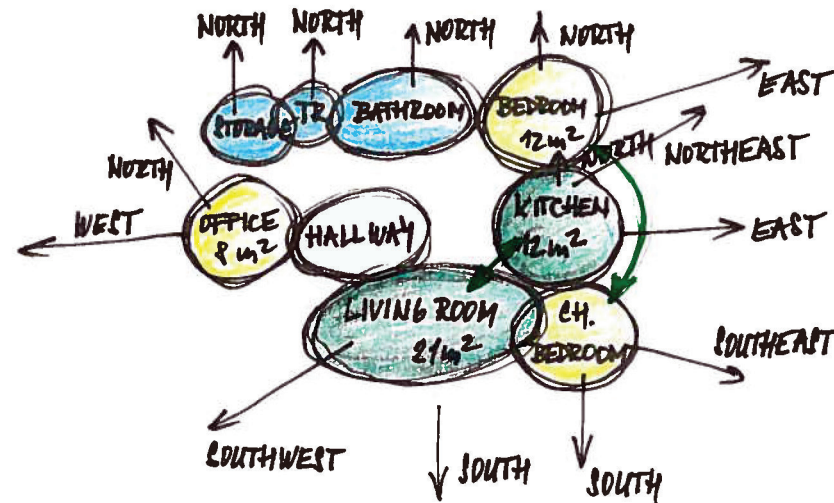 NORTH
NORTH
NORTH
NORTH
EAST
STORAGE
TR
BATHROOM
BEDROOM
12 m²
NORTH
NORTHEAST
NORTH
WEST
OFFICE
8 m²
HALLWAY
KITCHEN
12 m²
EAST
LIVING ROOM
21 m²
CH.
BEDROOM
SOUTHEAST
SOUTHWEST
SOUTH
SOUTH